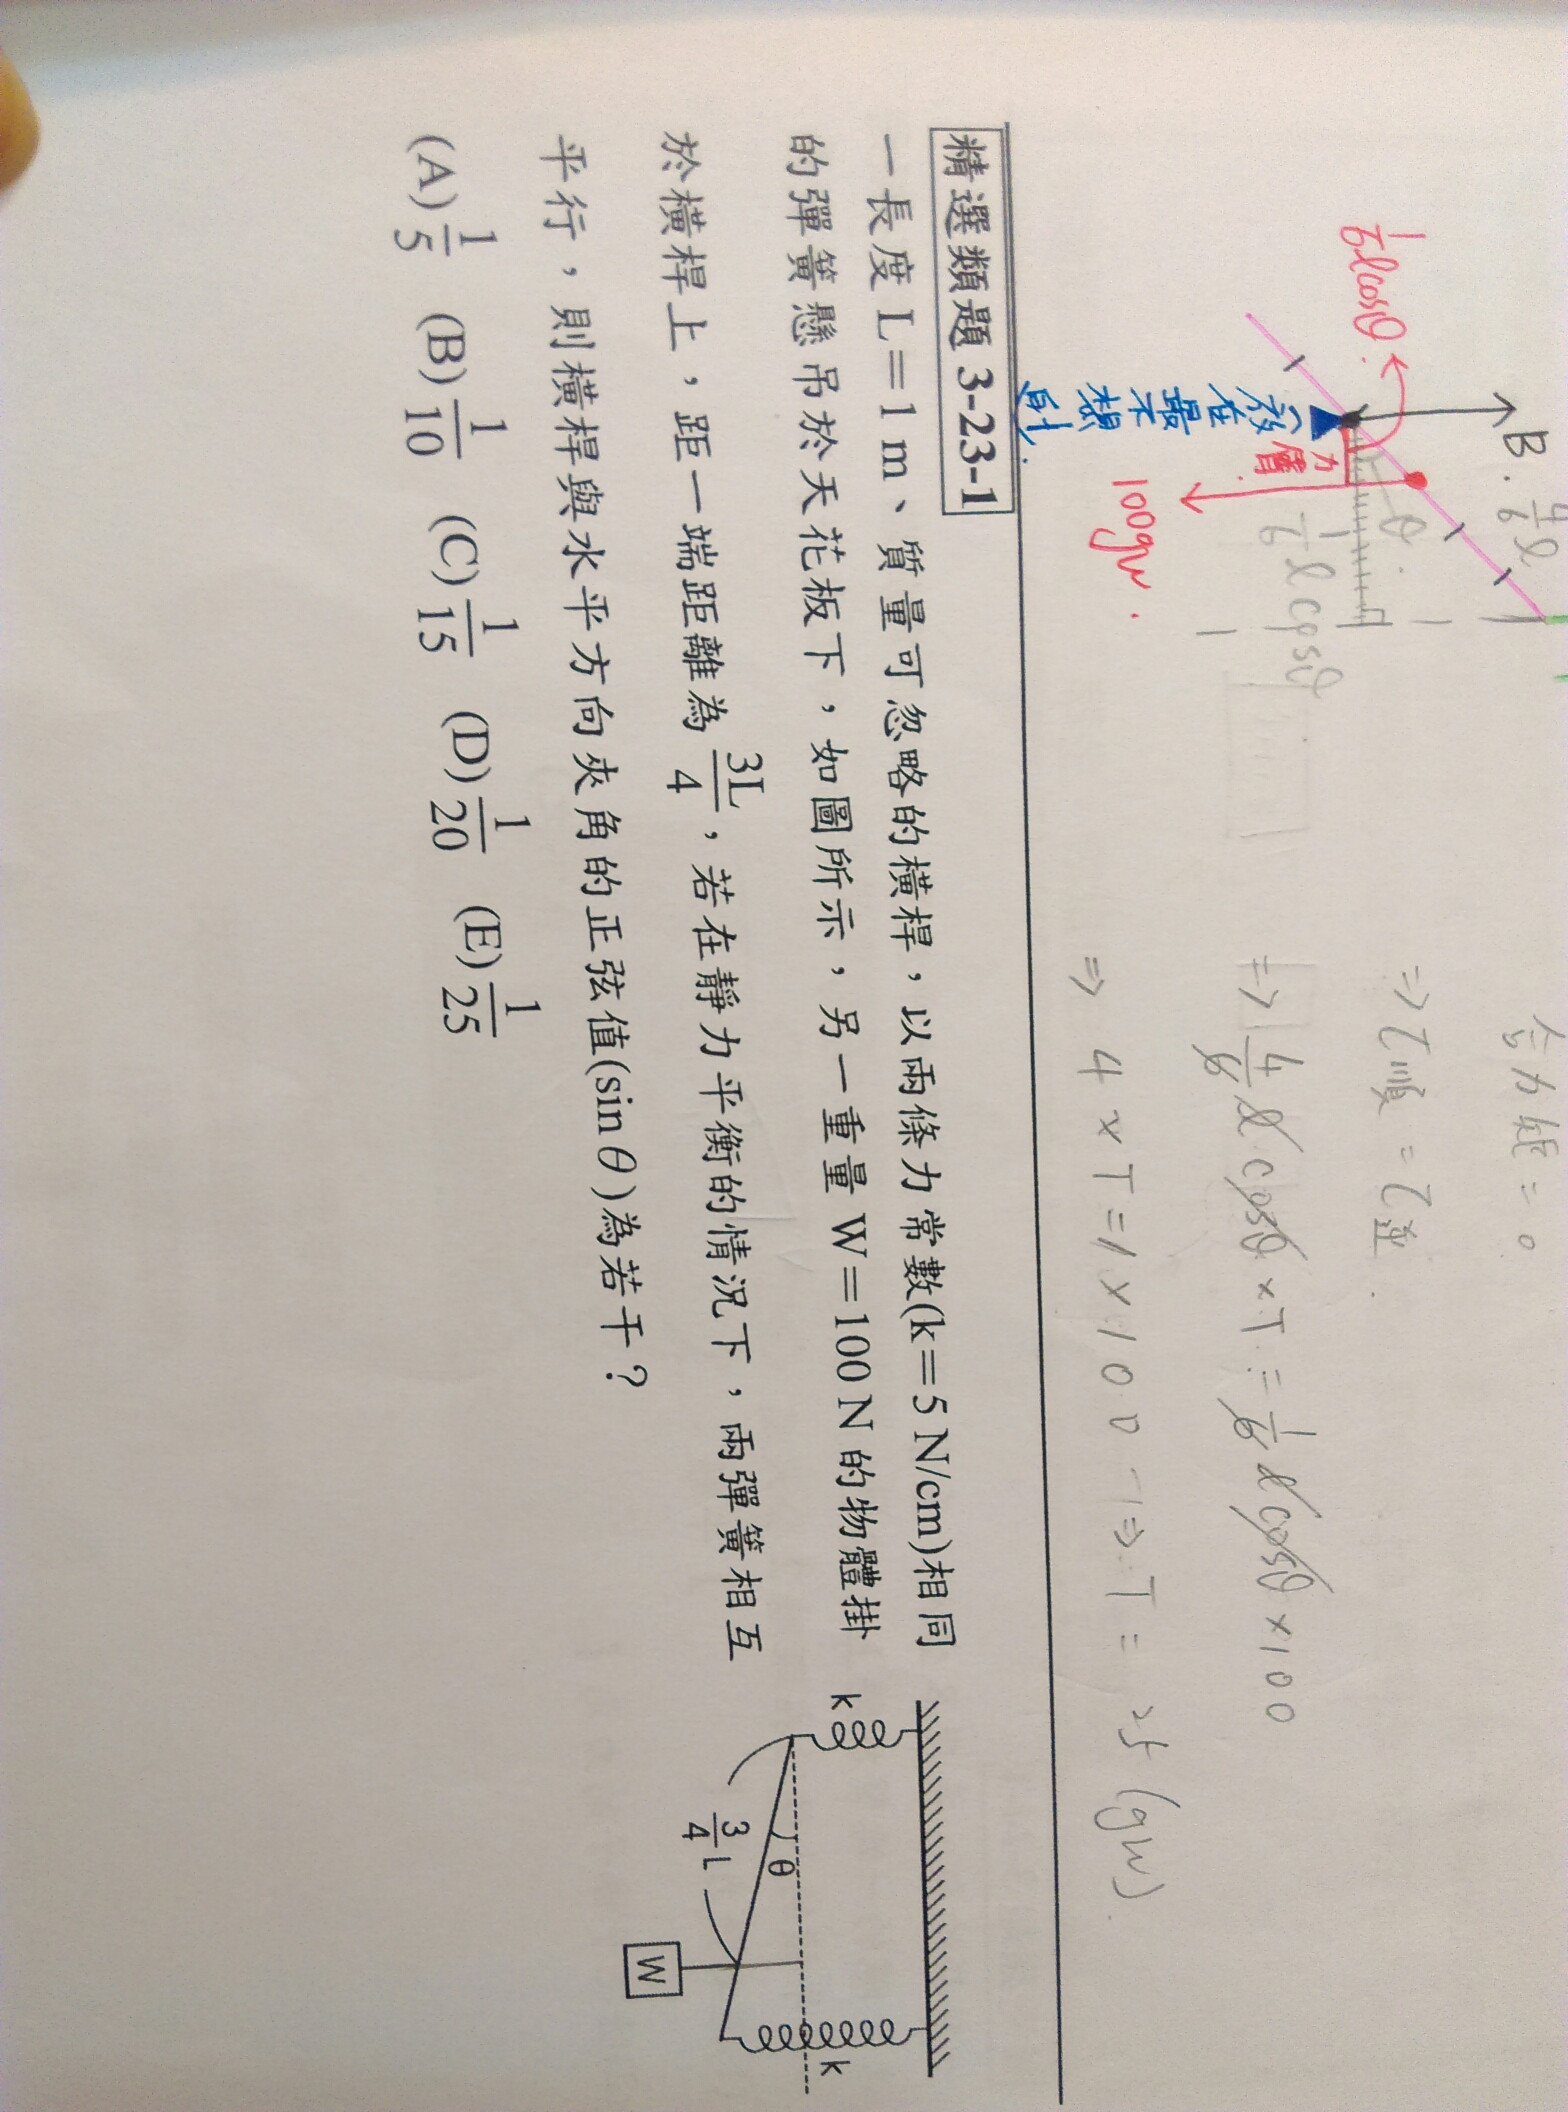 B. 4/6 ℓ
1/6 ℓcosθ
θ
1/6 ℓcosθ
力臂
100gw.
(放在最
合力矩 = 0
⇒ τ順 = τ逆
⇒ 4/6 ℓ cosθ × T = 1/6 ℓ cosθ × 100
⇒ 4 × T = 1 × 100 ⇒ T = 25 (gw)
精選類題 3-23-1
一長度 L=1 m、質量可忽略的橫桿,以兩條力常數(k=5 N/cm)相同
的彈簧懸吊於天花板下,如圖所示,另一重量 W=100 N 的物體掛
於橫桿上,距一端距離為 3L/4,若在靜力平衡的情況下,兩彈簧相互
平行,則橫桿與水平方向夾角的正弦值(sin θ)為若干?
(A) 1/5 (B) 1/10 (C) 1/15 (D) 1/20 (E) 1/25
k
k
θ
3/4 L
W